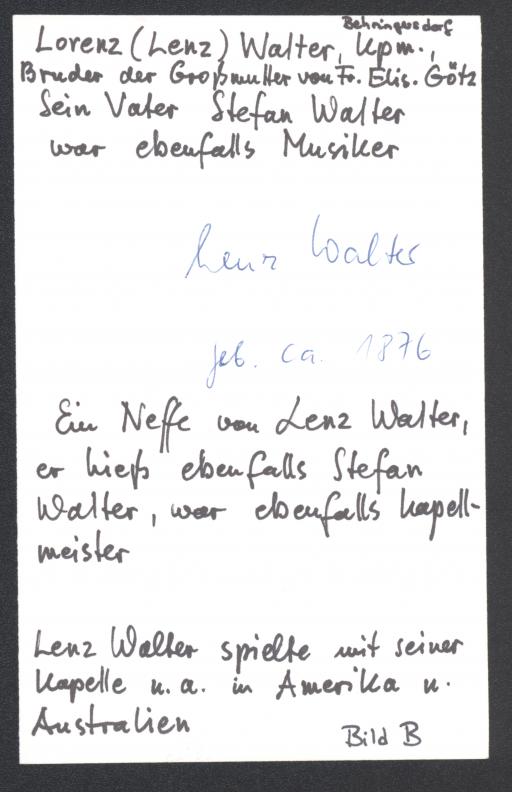 Behringersdorf
Lorenz (Lenz) Walter, Kpm.,
Bruder der Großmutter von Fr. Elis. Götz
Sein Vater Stefan Walter
war ebenfalls Musiker
Lenz Walter
geb. ca. 1876
Ein Neffe von Lenz Walter,
er hieß ebenfalls Stefan
Walter, war ebenfalls Kapell-
meister
Lenz Walter spielte mit seiner
Kapelle u. a. in Amerika u.
Australien
Bild B